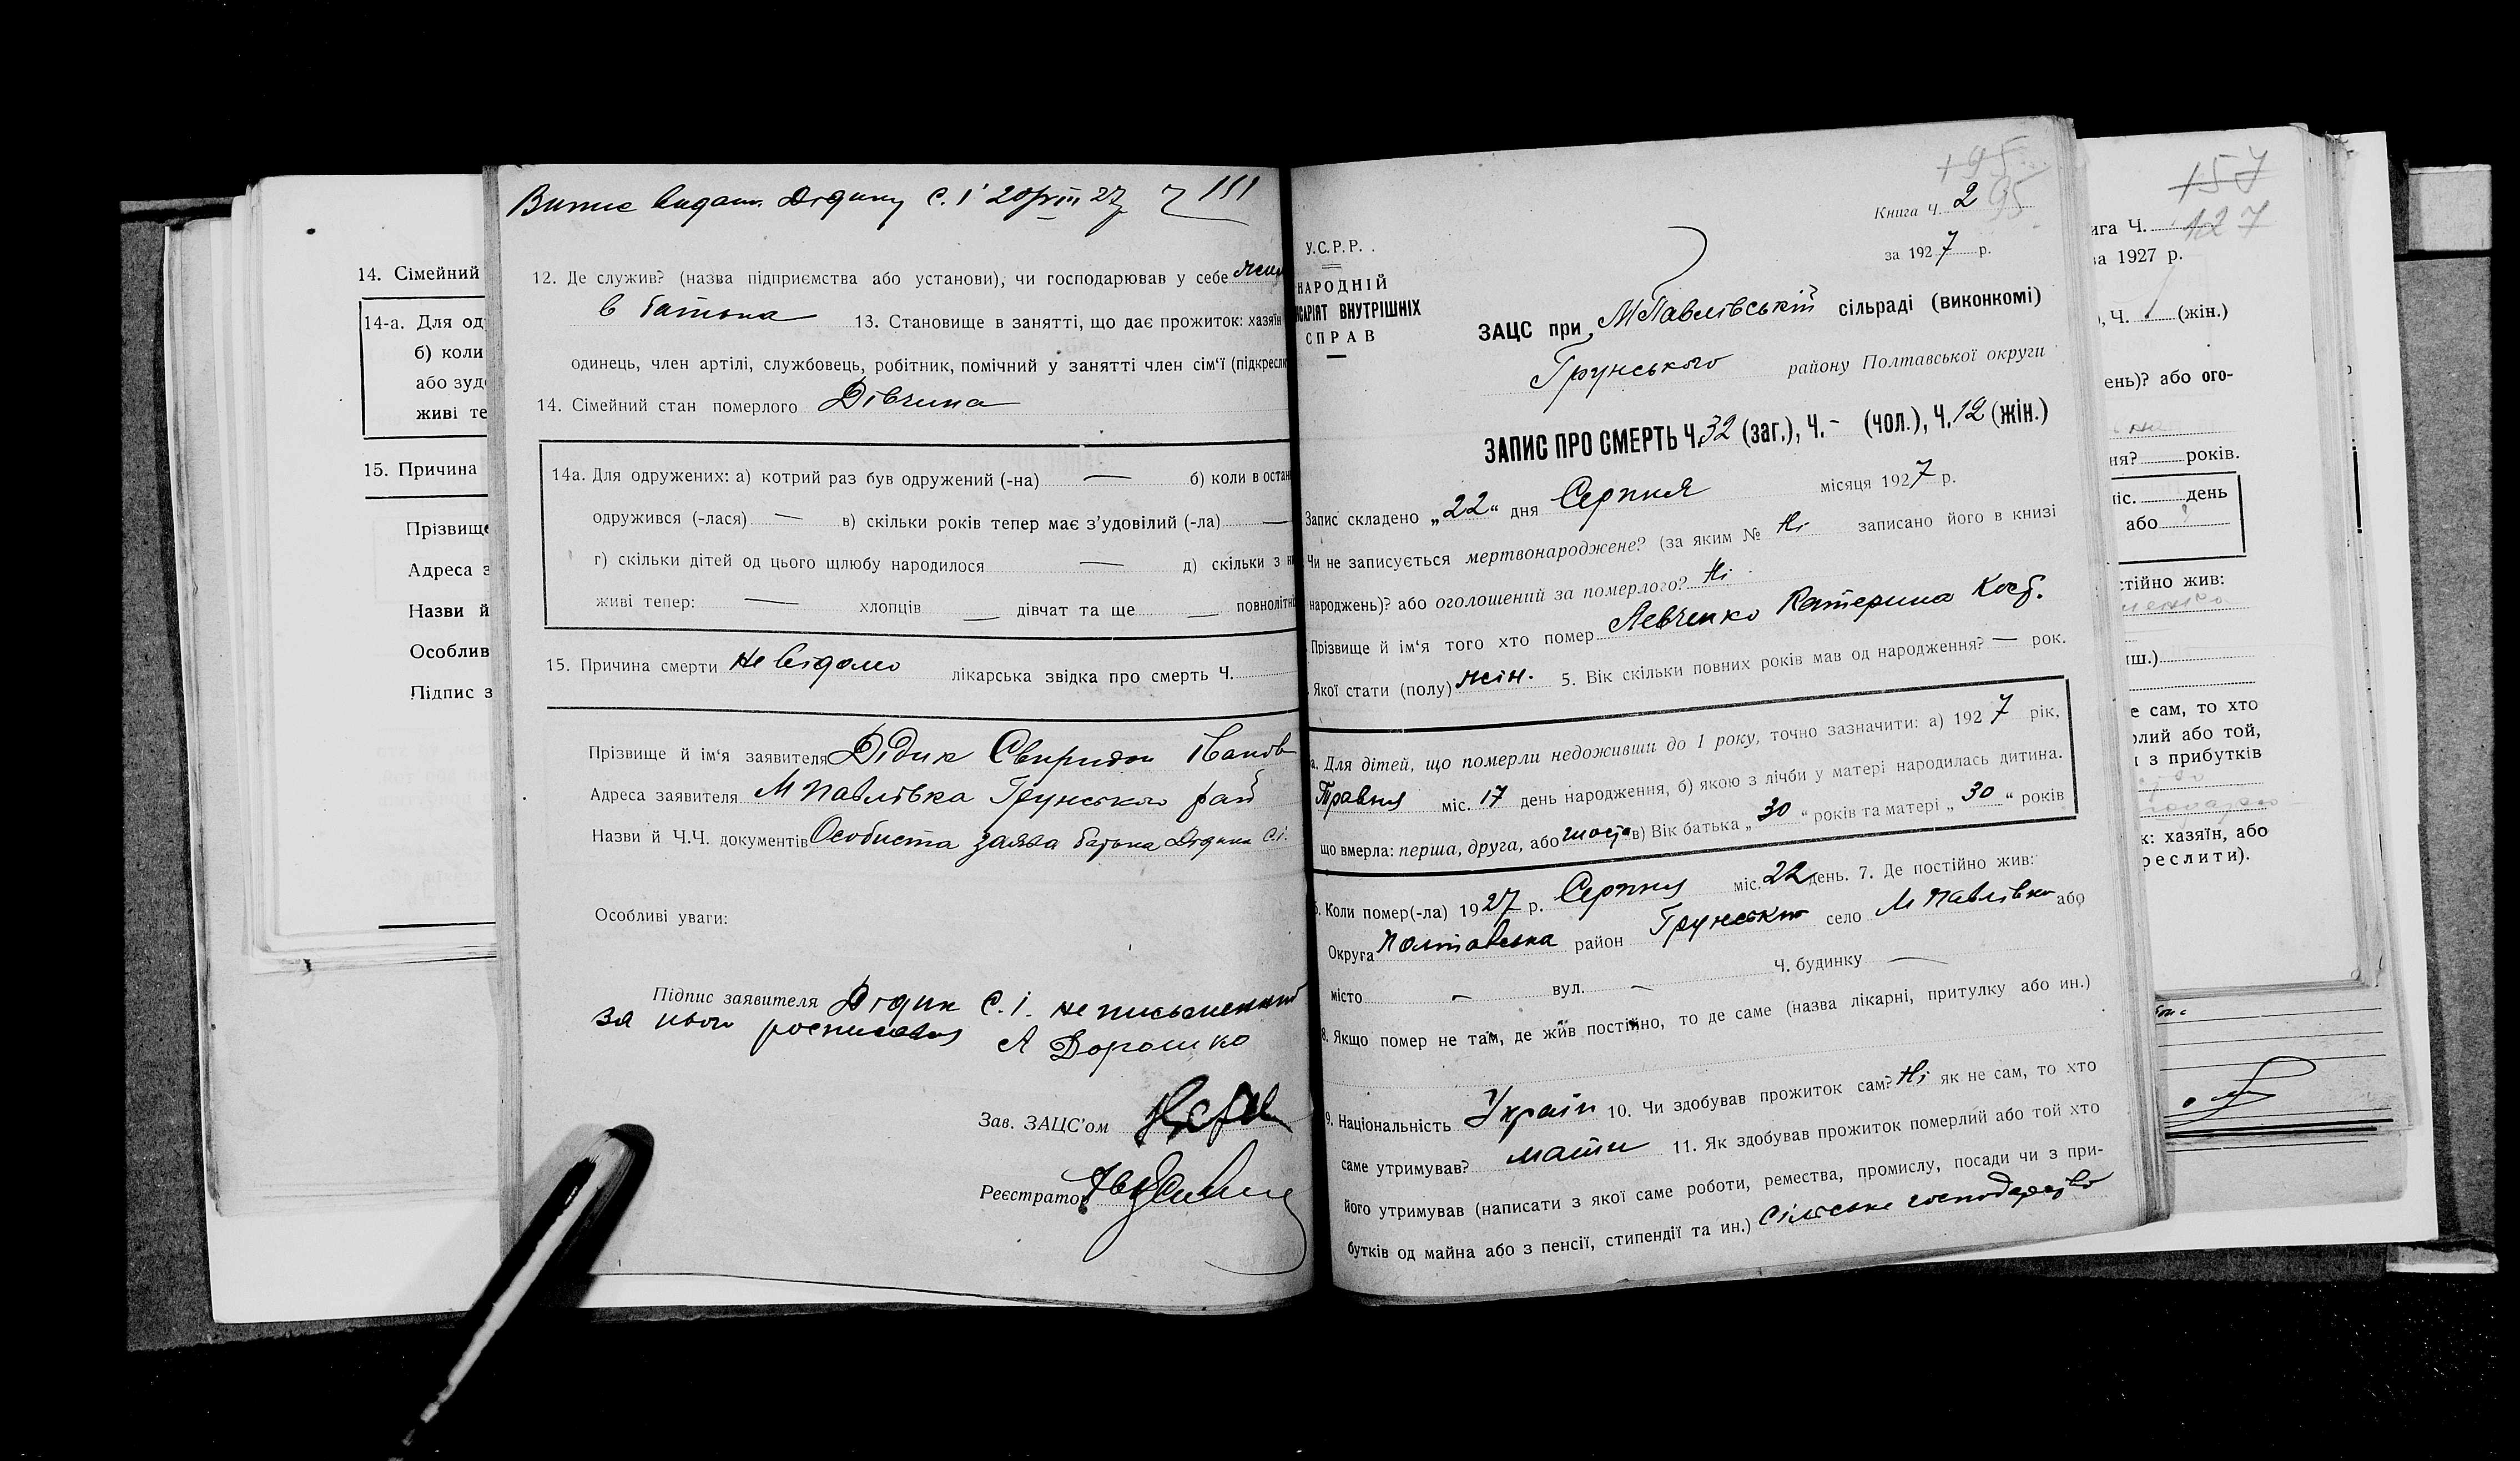 14. Сімейний
14-а. Для од
б) коли
або зуд
живі те
15. Причина
Прізвище
Адреса з
Назви й
Особлив
Підпис з
Випис видан. Дідику С. І 20/VIII 27 151
12. Де служив? (назва підприємства або установи), чи господарював у себе
в батька 13. Становище в занятті, що дає прожиток: хазяїн
одинець, член артілі, службовець, робітник, помічний у занятті член сім'ї (підкресли
14. Сімейний стан померлого Дівчина
14а. Для одружених: а) котрий раз був одружений (-на) — б) коли в остан
одружився (-лася) — в) скільки років тепер має з'удовілий (-ла) —
г) скільки дітей од цього щлюбу народилося — д) скільки з н
живі тепер: — хлопців — дівчат та ще — повнолітн
15. Причина смерти не відомо лікарська звідка про смерть Ч.
Прізвище й ім'я заявителя Дідик Свиридон Іванов
Адреса заявителя М Павлівка Грунського рай
Назви й Ч.Ч. документів Особиста заява батька Дідика С.І.
Особливі уваги:
Підпис заявителя Дідик С. І. не письменний
за нього росписався
А Дорошко
Зав. ЗАЦС'ом
Реєстратор
195
Книга Ч. 2 95
за 1927 р.
У.С.Р.Р.
НАРОДНІЙ
ІСАРІЯТ ВНУТРІШНІХ
СПРАВ
ЗАЦС при М Павлівській сільраді (виконкомі)
Грунського району Полтавської округи
ЗАПИС ПРО СМЕРТЬ Ч. 32 (заг.), Ч. - (чол.), Ч. 12 (жін.)
Запис складено „22“ дня Серпня місяця 1927 р.
Чи не записується мертвонароджене? (за яким № Ні записано його в книзі
народжень)? або оголошений за померлого? Ні
Прізвище й ім'я того хто помер Левченко Катерина
Якої стати (полу) жін. 5. Вік скільки повних років мав од народження? — рок.
а. Для дітей, що померли недоживши до 1 року, точно зазначити: а) 1927 рік,
Травня міс. 17 день народження, б) якою з лічби у матері народилась дитина.
що вмерла: перша, друга, або шоста в) Вік батька „30“ років та матері „30“ років
6. Коли помер(-ла) 1927 р. Серпня міс. 22 день. 7. Де постійно жив:
Округа Полтавська район Грунський село М Павлівка або
місто — вул. — Ч. будинку —
8. Якщо помер не там, де жив постійно, то де саме (назва лікарні, притулку або ин.)
9. Національність Україн 10. Чи здобував прожиток сам? Ні як не сам, то хто
саме утримував? мати 11. Як здобував прожиток померлий або той хто
його утримував (написати з якої саме роботи, ремества, промислу, посади чи з при-
бутків од майна або з пенсії, стипендії та ин.) Сільське господарство
157
ига Ч. 127
за 1927 р.
), Ч. (жін.)
ень)? або ого-
ня? років.
міс. день
або ?
стійно жив:
иш.)
е сам, то хто
рлий або той,
и з прибутків
к: хазяїн, або
реслити).